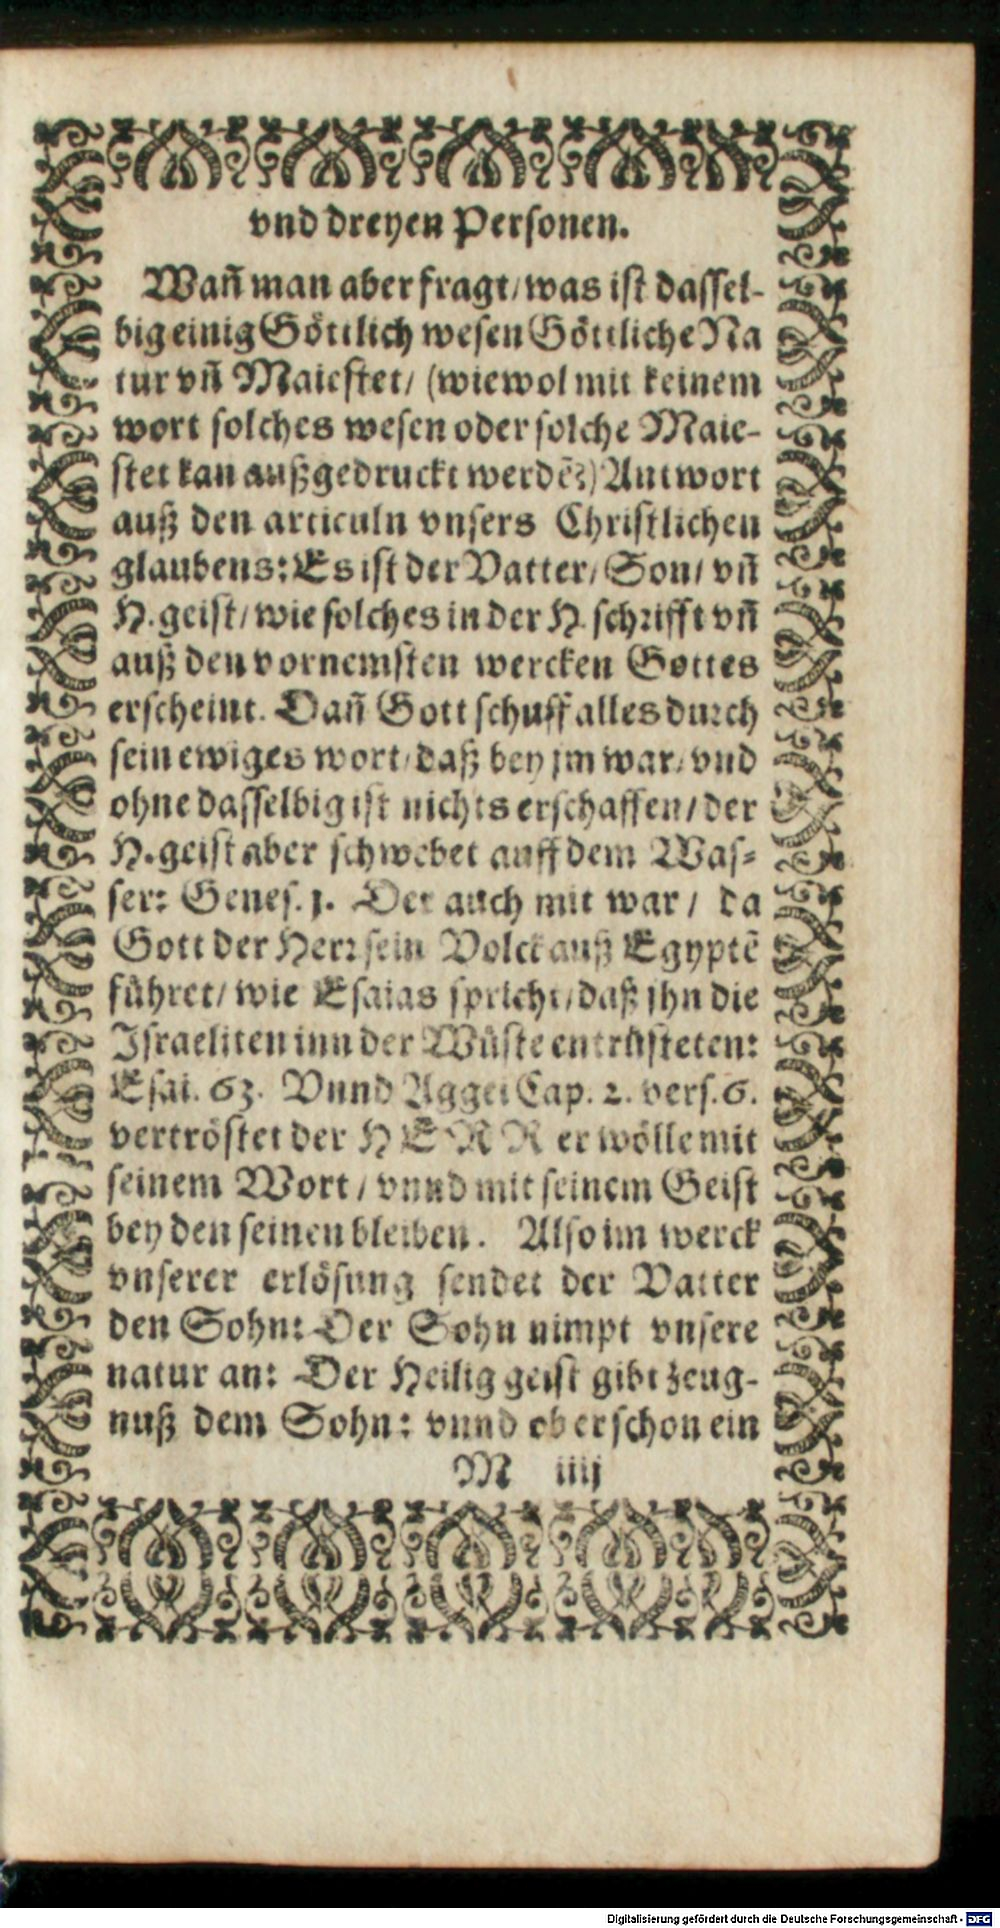 vnd dreyen Personen.
Wañ man aber fragt/ was ist dassel-
big einig Göttlich wesen Göttliche Na
tur vñ Maiestet/ (wiewol mit keinem
wort solches wesen oder solche Maie-
stet kan außgedruckt werdẽ?) Antwort
auß den articuln vnsers Christlichen
glaubens: Es ist der Vatter/ Son/ vñ
H. geist/ wie solches in der H. schrifft vñ
auß den vornemsten wercken Gottes
erscheint. Dañ Gott schuff alles durch
sein ewiges wort/ daß bey jm war/ vnd
ohne dasselbig ist nichts erschaffen/ der
H. geist aber schwebet auff dem Was-
ser: Genes. 1. Der auch mit war / da
Gott der Herr sein Volck auß Egyptẽ
führet/ wie Esaias spricht/ daß jhn die
Israeliten inn der Wüste entrüsteten:
Esai. 63. Vnnd Aggei Cap. 2. vers. 6.
vertröstet der HERR er wölle mit
seinem Wort / vnnd mit seinem Geist
bey den seinen bleiben. Also im werck
vnserer erlösung sendet der Vatter
den Sohn: Der Sohn nimpt vnsere
natur an: Der Heilig geist gibt zeug-
nuß dem Sohn: vnnd ob er schon ein
M iiij
Digitalisierung gefördert durch die Deutsche Forschungsgemeinschaft - DFG